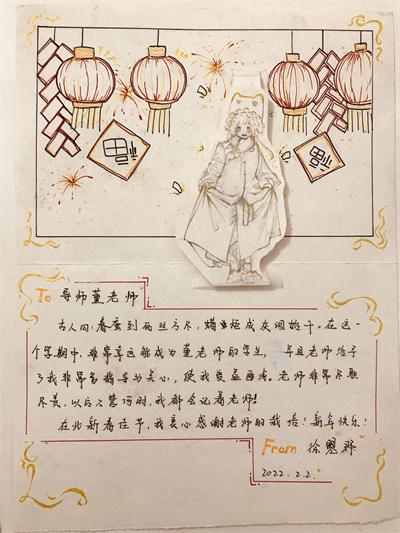 福
福
To 导师董老师
古人曰:春蚕到死丝方尽,蜡炬成灰泪始干。在这一
个学期中,非常幸运能成为董老师的学生,并且老师给予
了我非常多指导与关心,使我受益匪浅。老师非常尽职
尽责,以后不管何时,我都会记着老师!
在此新春佳节,我衷心感谢老师的栽培!新年快乐!
From 徐
2022.2.2.